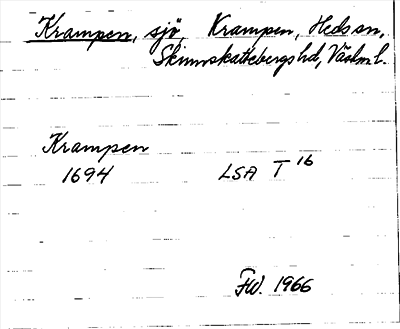 Krampen, sjö, Krampen, Heds sn,
Skinnskattebergs hd, Västm l.
Krampen
1694 LSA T 16
FW. 1966